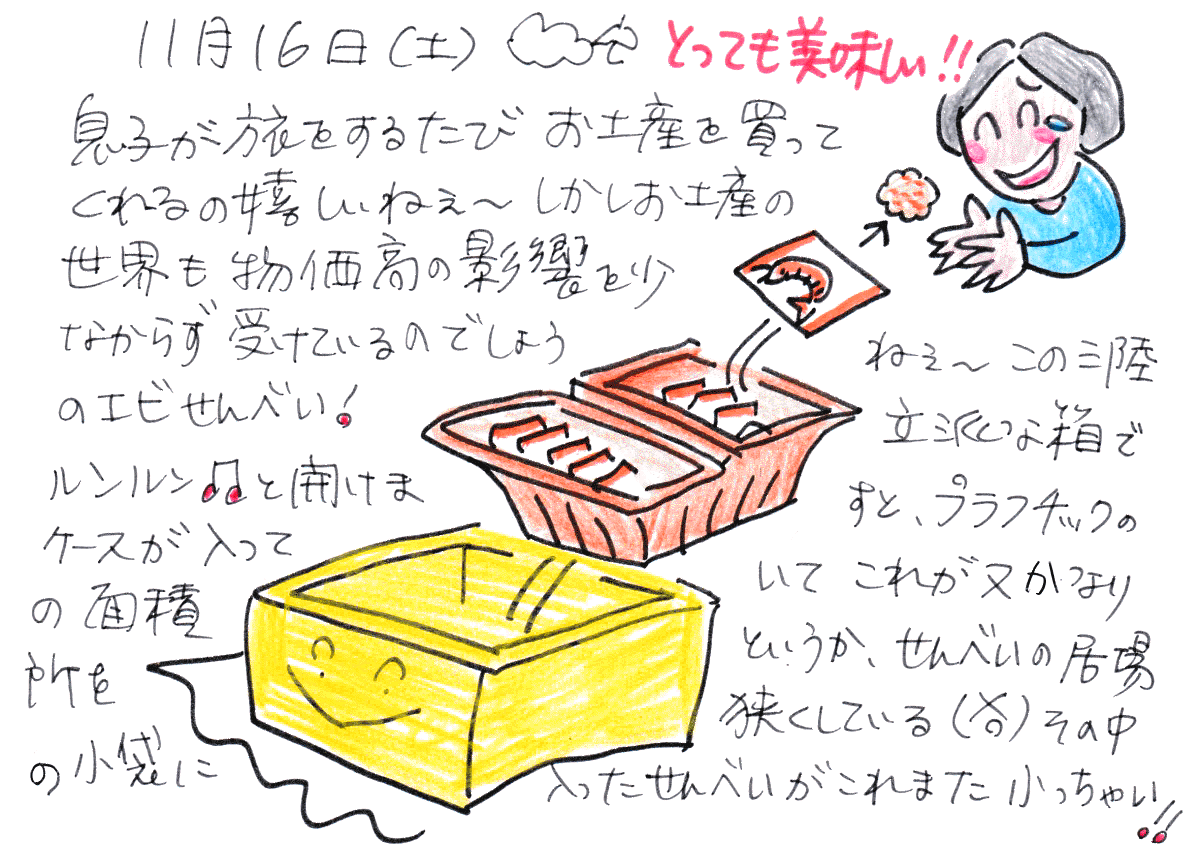 11月16日(土)
とっても美味しい!!
息子が旅をするたび お土産を買って
くれるの嬉しいねぇ〜しかしお土産の
世界も物価高の影響を少
なからず受けているのでしょう ねぇ〜この三陸
のエビせんべい! 立派な箱で
ルンルン♫と開けま すと、プラスチックの
ケースが入って いて これが又かなり
の面積 というか、せんべいの居場
所を 狭くしている(笑)その中
の小袋に 入ったせんべいがこれまた小っちゃい!!